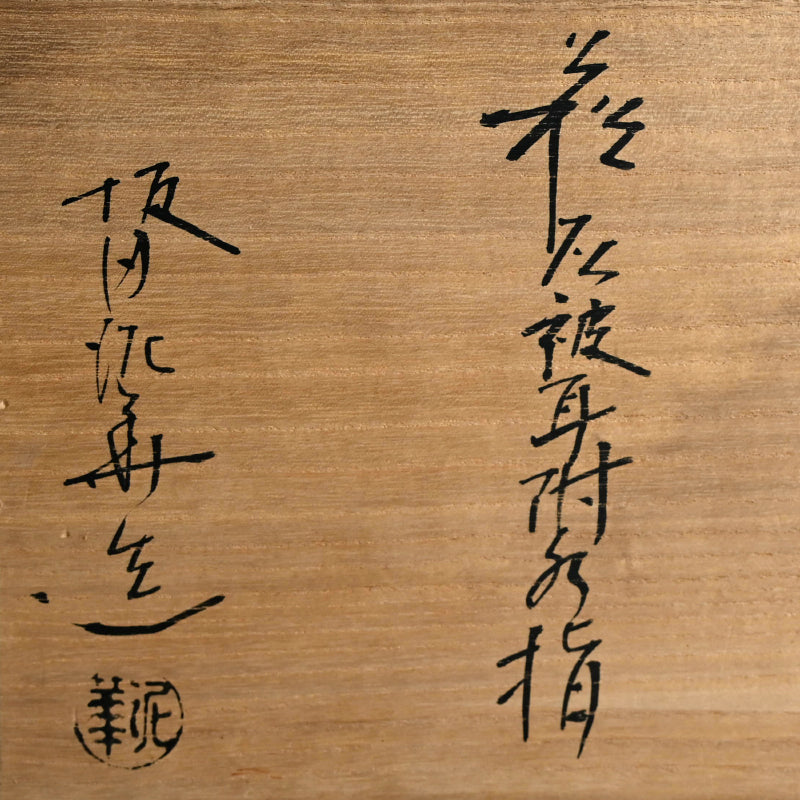 萩灰被耳附水指
坂田泥華造
泥華